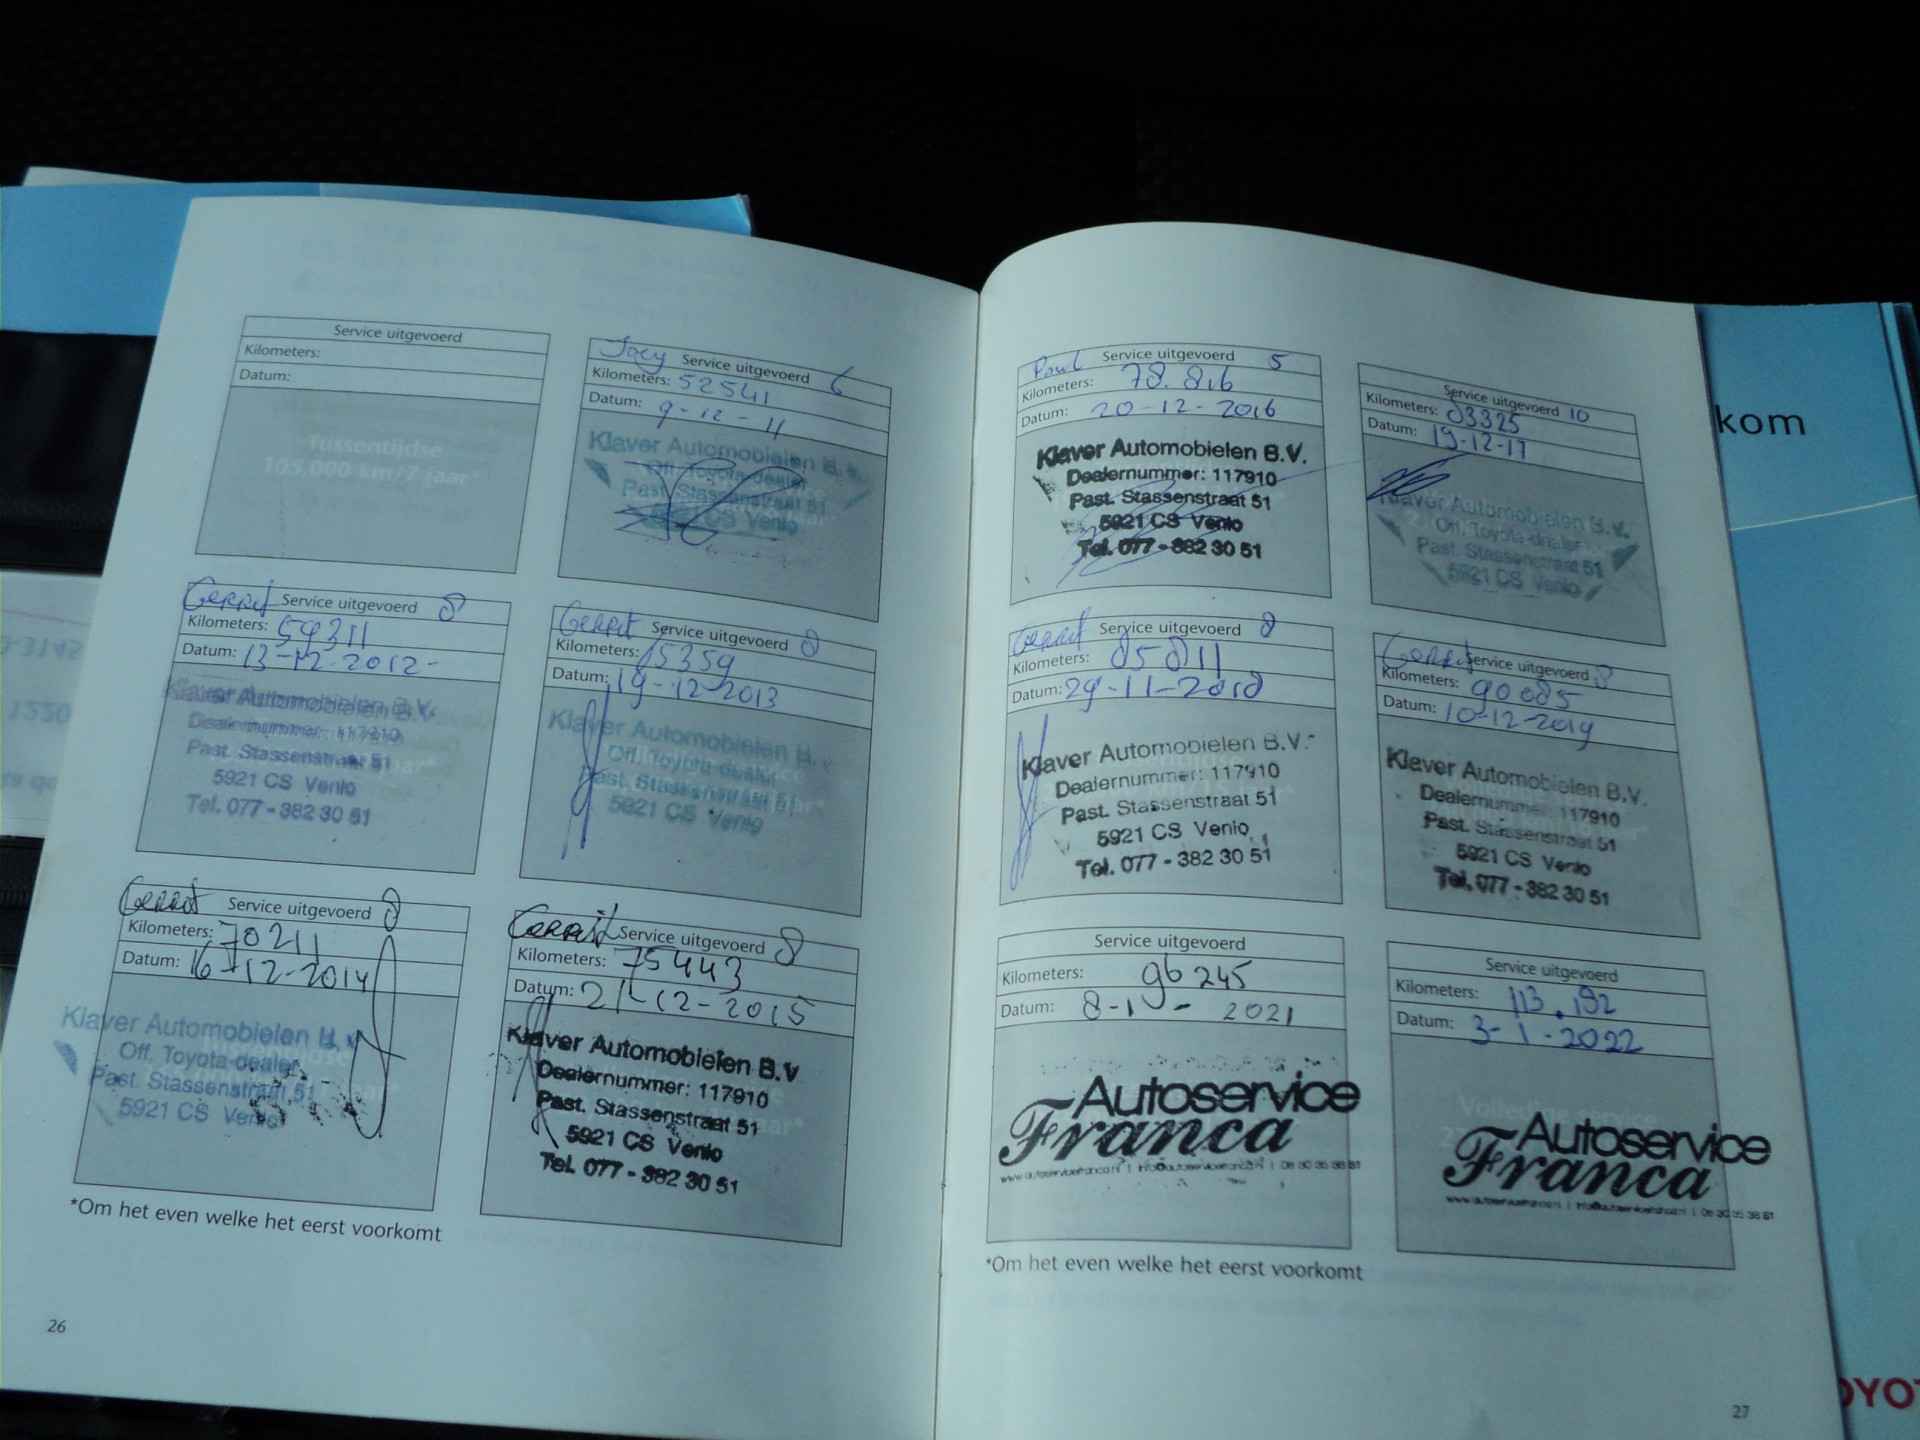 Service uitgevoerd
Kilometers:
Datum:
Tussentijdse
105.000 km/7 jaar*
Joey Service uitgevoerd 6
Kilometers: 52541
Datum: 9-12-11
Klaver Automobielen B.V.
Off. Toyota-dealer
Past. Stassenstraat 51
5921 CS Venlo
Gerrit Service uitgevoerd 8
Kilometers: 59311
Datum: 13-12-2012-
Klaver Automobielen B.V.
Dealernummer: 117910
Past. Stassenstraat 51
5921 CS Venlo
Tel. 077 - 382 30 51
Gerrit Service uitgevoerd 8
Kilometers: 65359
Datum: 19-12-2013
Klaver Automobielen B.V.
Off. Toyota-dealer
Past. Stassenstraat 51
5921 CS Venlo
Gerrit Service uitgevoerd 8
Kilometers: 70211
Datum: 16-12-2014
Klaver Automobielen B.V.
Off. Toyota-dealer
Past. Stassenstraat 51
5921 CS Venlo
Gerrit Service uitgevoerd 8
Kilometers: 75443
Datum: 21-12-2015
Klaver Automobielen B.V
Dealernummer: 117910
Past. Stassenstraat 51
5921 CS Venlo
Tel. 077 - 382 30 51
*Om het even welke het eerst voorkomt
26
Paul Service uitgevoerd 5
Kilometers: 78.816
Datum: 20-12-2016
Klaver Automobielen B.V.
Dealernummer: 117910
Past. Stassenstraat 51
5921 CS Venlo
Tel. 077 - 382 30 51
Service uitgevoerd 10
Kilometers: 83325
Datum: 19-12-17
Klaver Automobielen B.V.
Off. Toyota-dealer
Past. Stassenstraat 51
5921 CS Venlo
Gerrit Service uitgevoerd 8
Kilometers: 85811
Datum: 29-11-2018
Klaver Automobielen B.V.
Dealernummer: 117910
Past. Stassenstraat 51
5921 CS Venlo
Tel. 077 - 382 30 51
Gerrit Service uitgevoerd 8
Kilometers: 90085
Datum: 10-12-2019
Klaver Automobielen B.V.
Dealernummer: 117910
Past. Stassenstraat 51
5921 CS Venlo
Tel. 077 - 382 30 51
Service uitgevoerd
Kilometers: 96245
Datum: 2021
Autoservice
Franca
Service uitgevoerd
Kilometers: 113.192
Datum: 3-1-2022
Volledige service
Autoservice
Franca
*Om het even welke het eerst voorkomt
27
kom
OYO